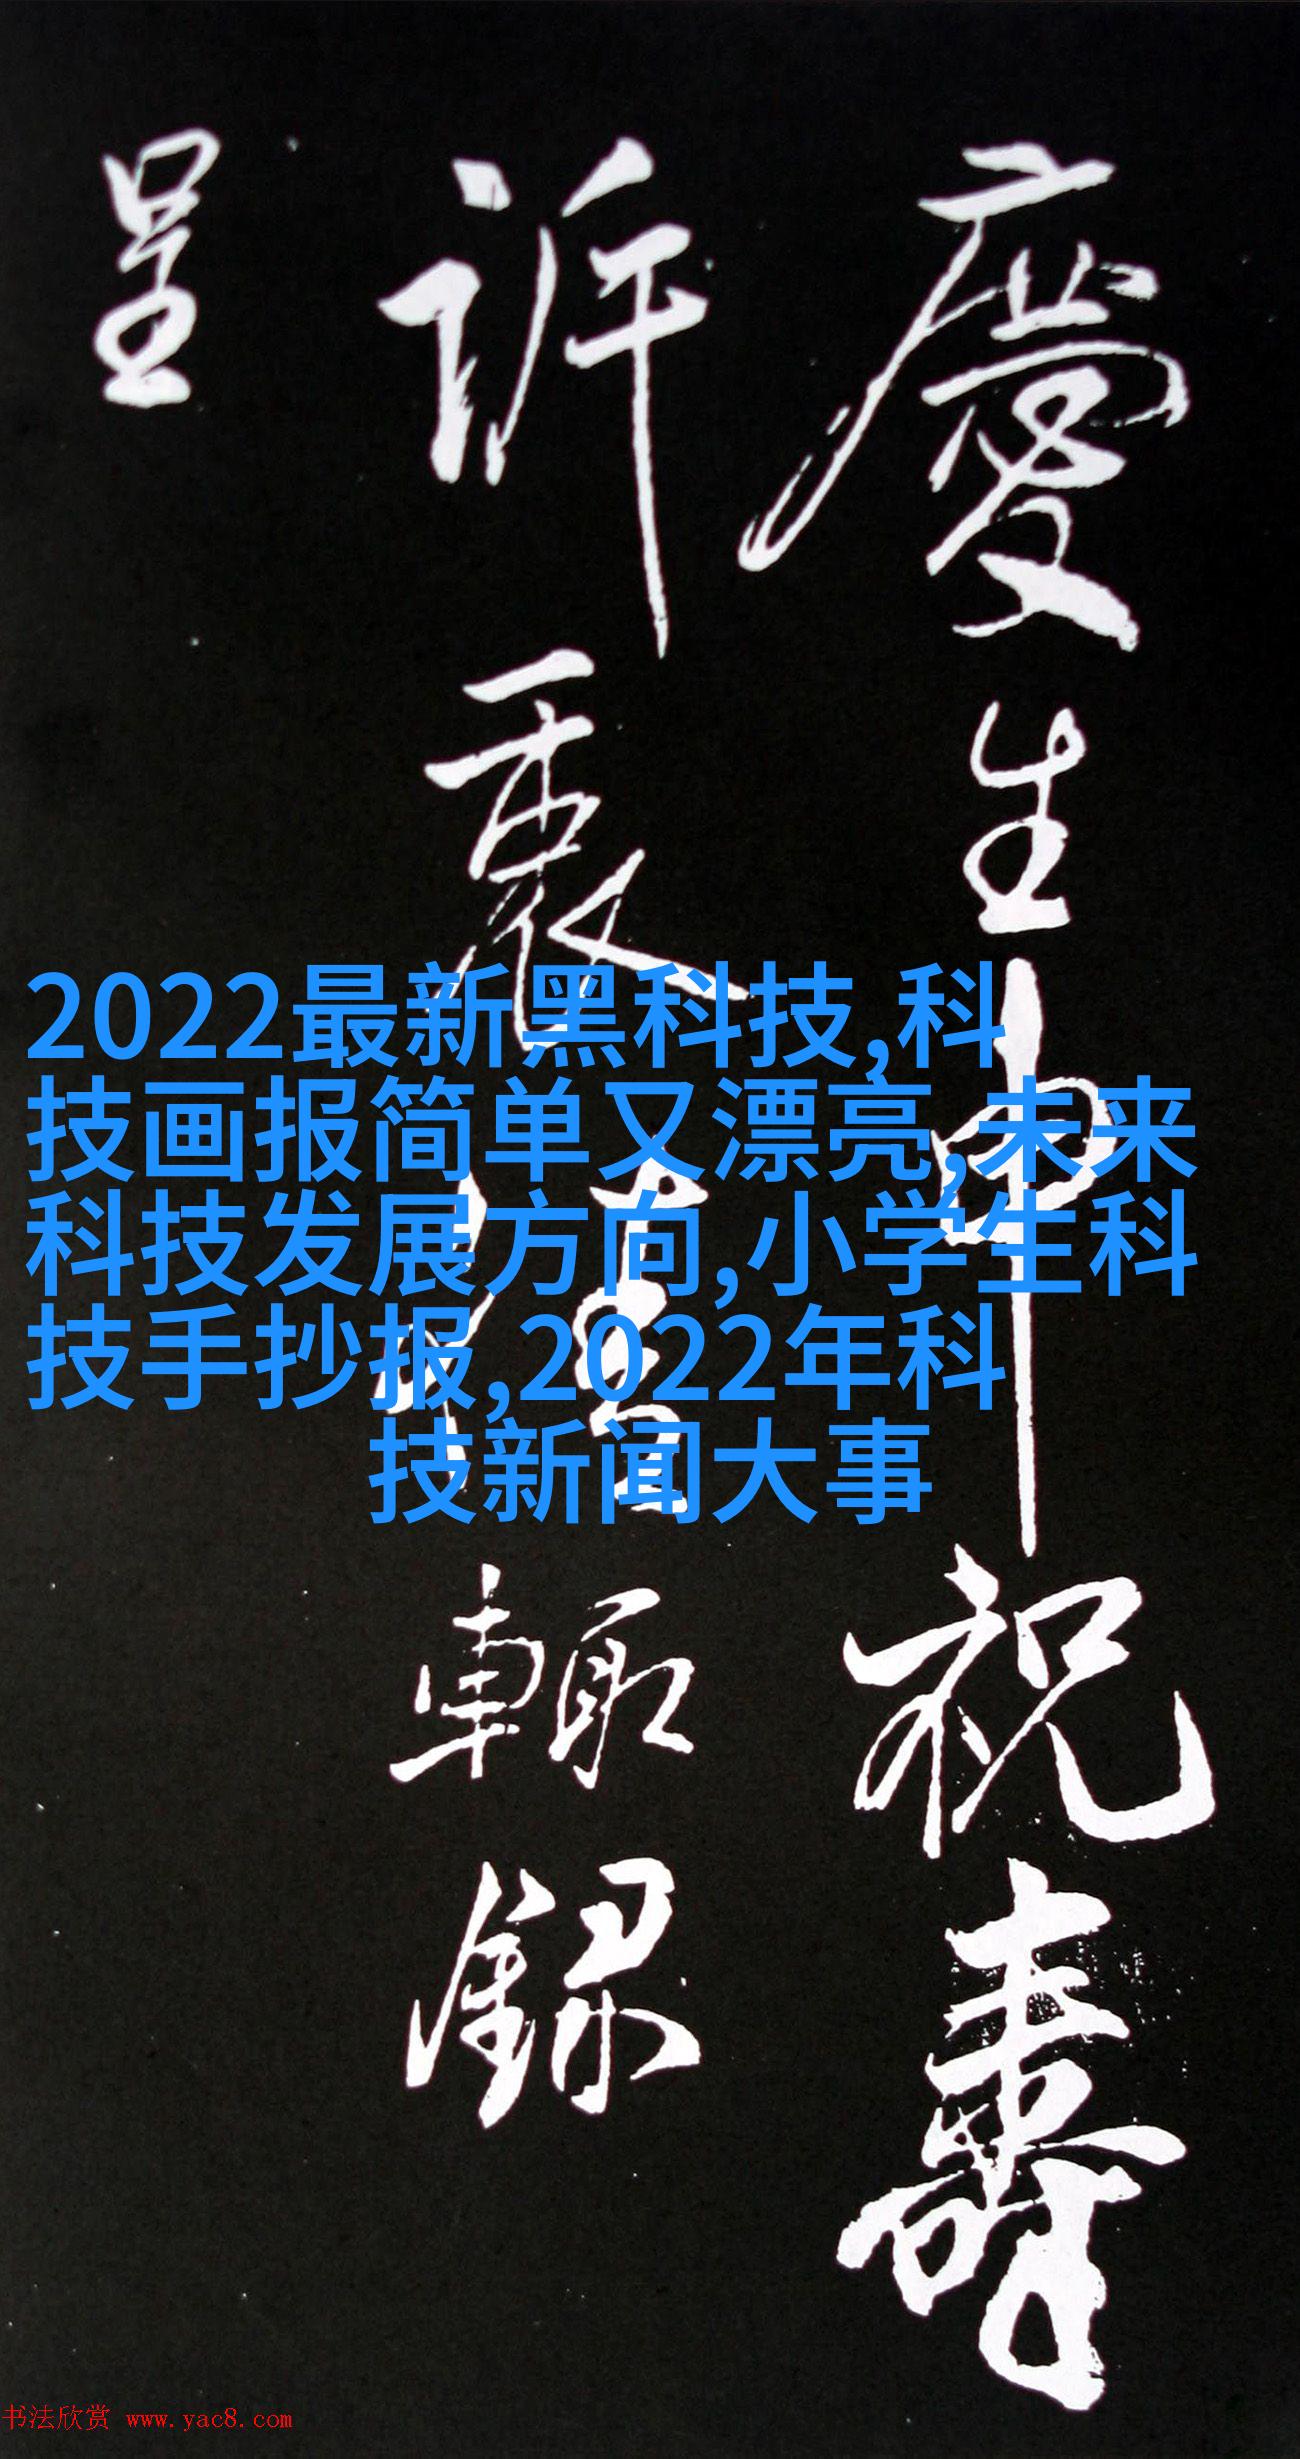 慶生申祝壽
訴衷情輙録
呈
2022最新黑科技,科
技画报简单又漂亮,未来
科技发展方向,小学生科
技手抄报,2022年科
技新闻大事
书法欣赏 www.yac8.com